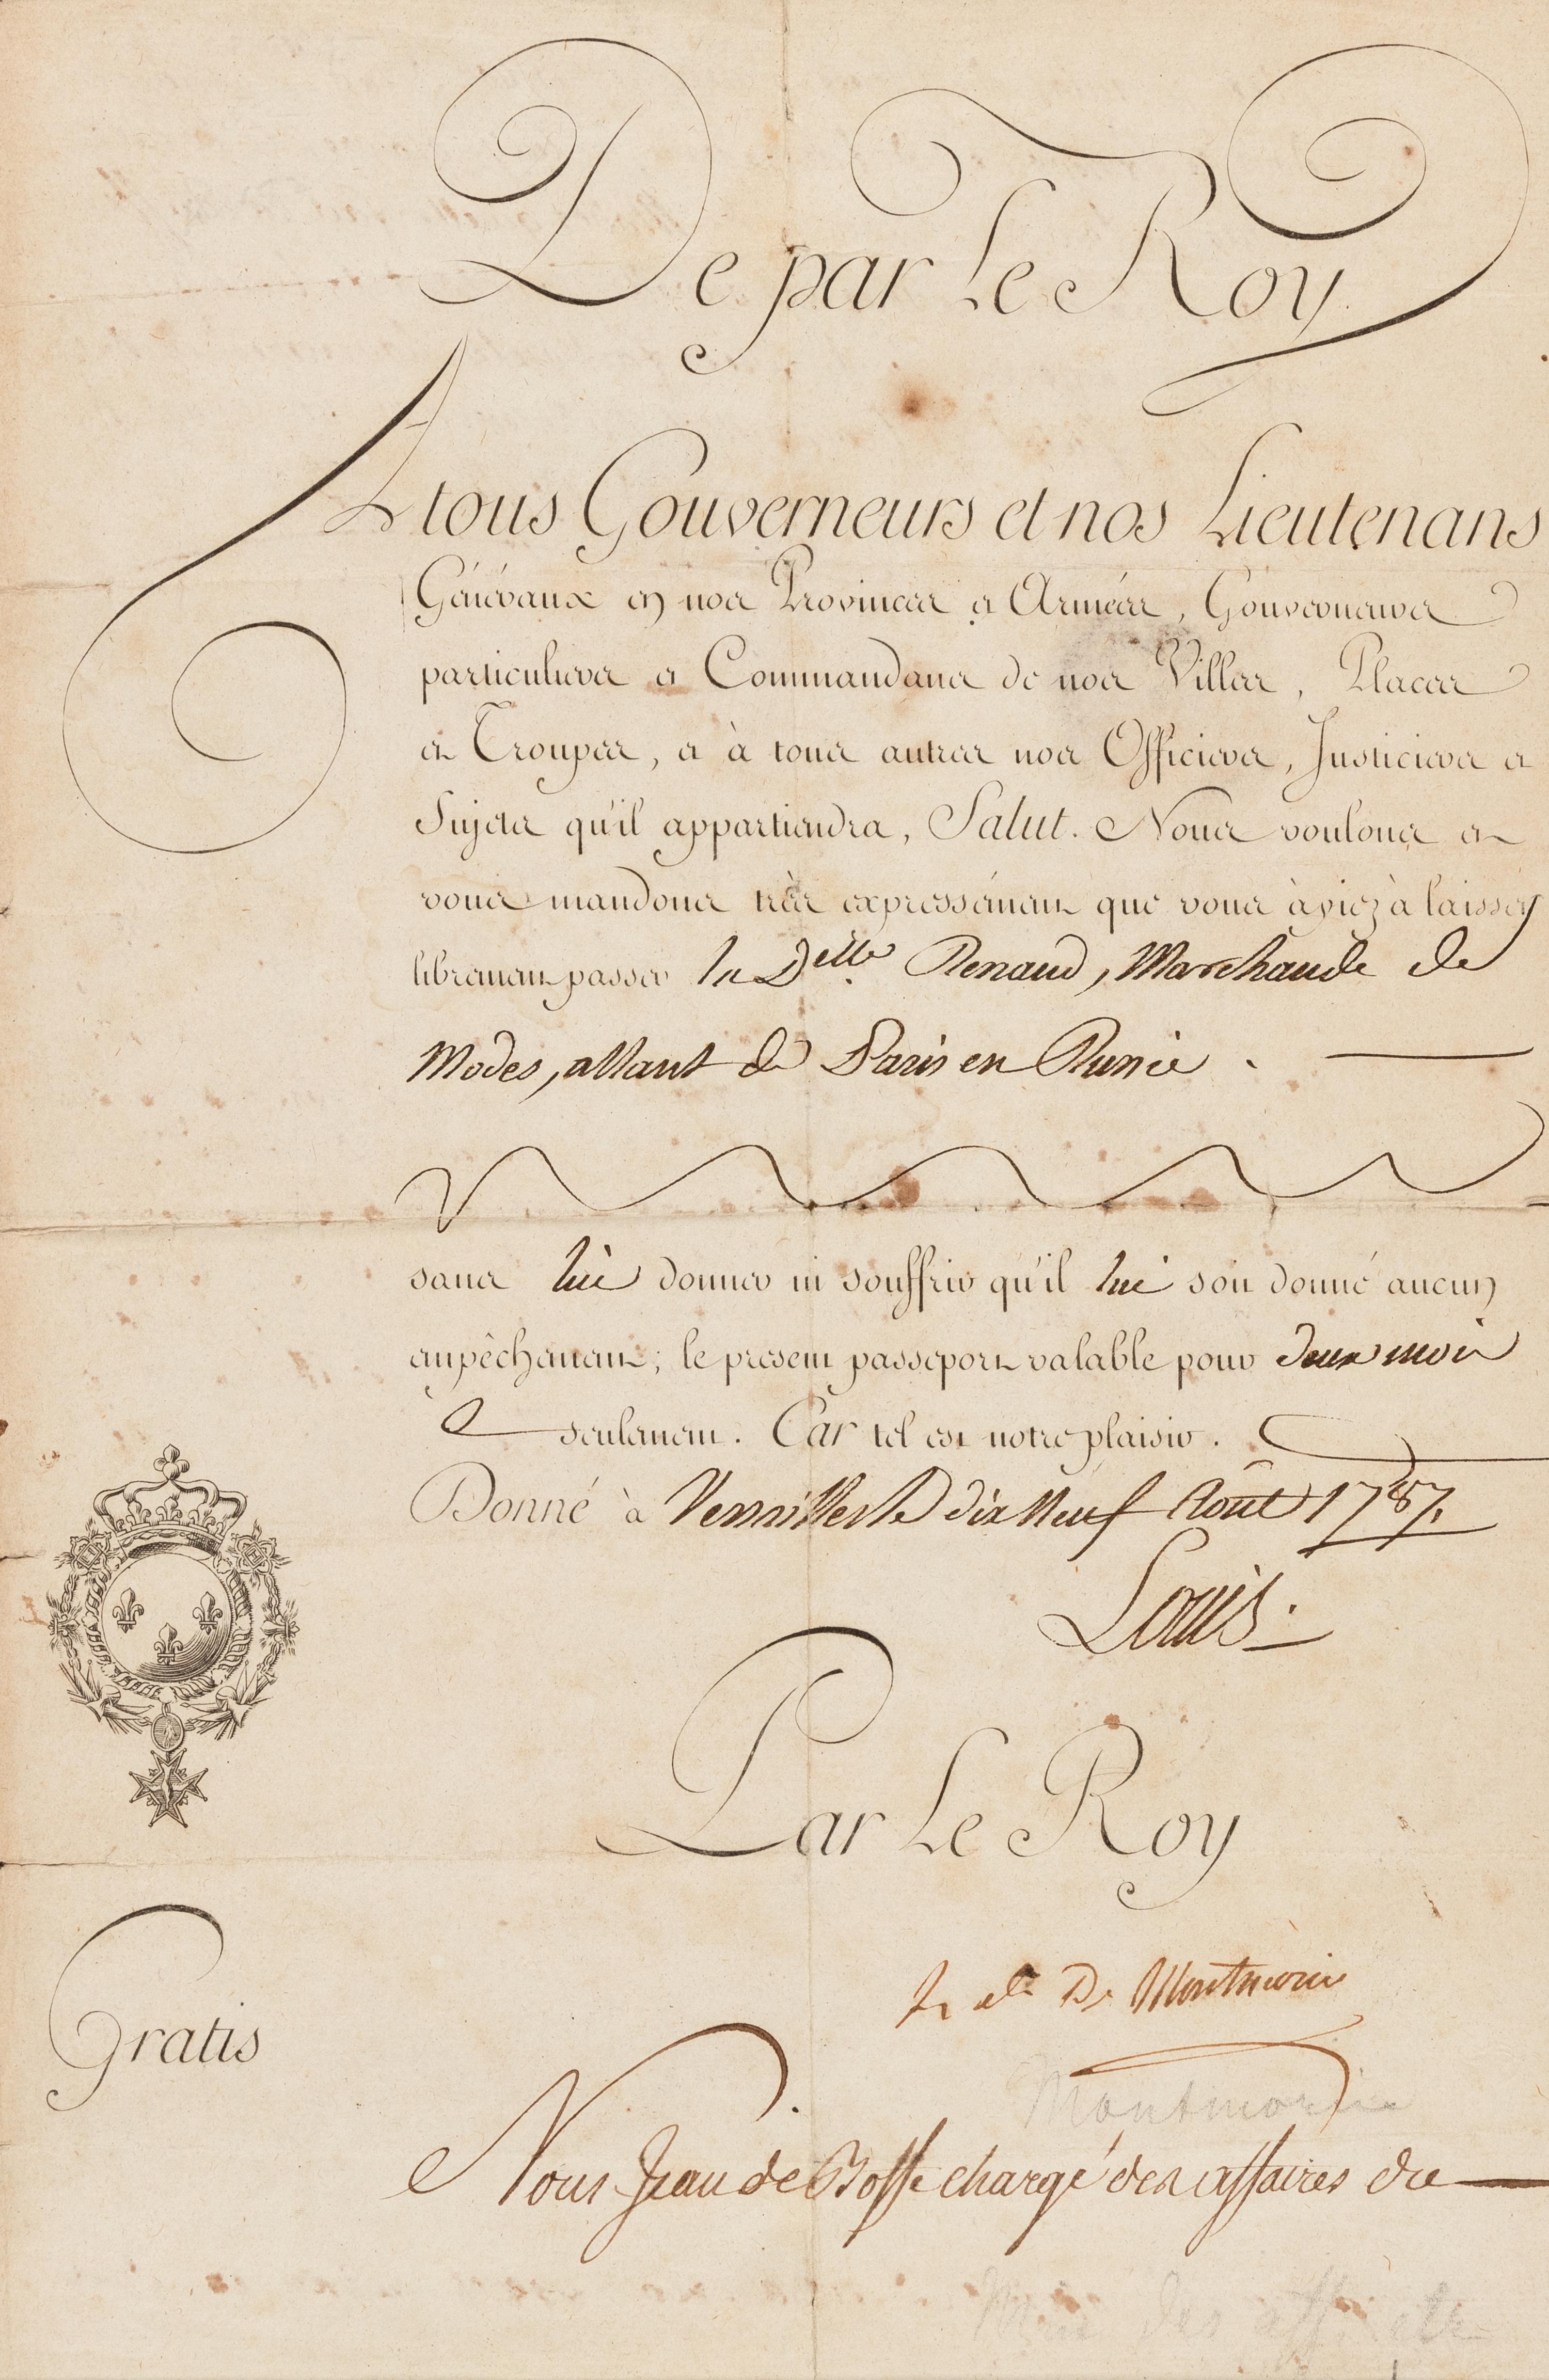 De par Le Roy
A tous Gouverneurs et nos Lieutenans
Généraux en nos Provinces et Armées, Gouverneurs
particuliers et Commandans de nos Villes, Places
et Troupes, et à tous autres nos Officiers, Justiciers et
Sujets qu'il appartiendra, Salut. Nous voulons et
vous mandons très expressément que vous àyiez à laisser
librement passer la Delle. Renaud, Marchande de
Modes, allant de Paris en Russie.
sans lui donner ni souffrir qu'il lui soit donné aucun
empêchement; le present passeport valable pour deux mois
seulement. Car tel est notre plaisir.
Donné à Versailles le dix Neuf Aout 1787.
Louis.
Par Le Roy
De Montmorin
Gratis
Montmorin
Nous Jean de chargé des affaires de
Min des aff etr